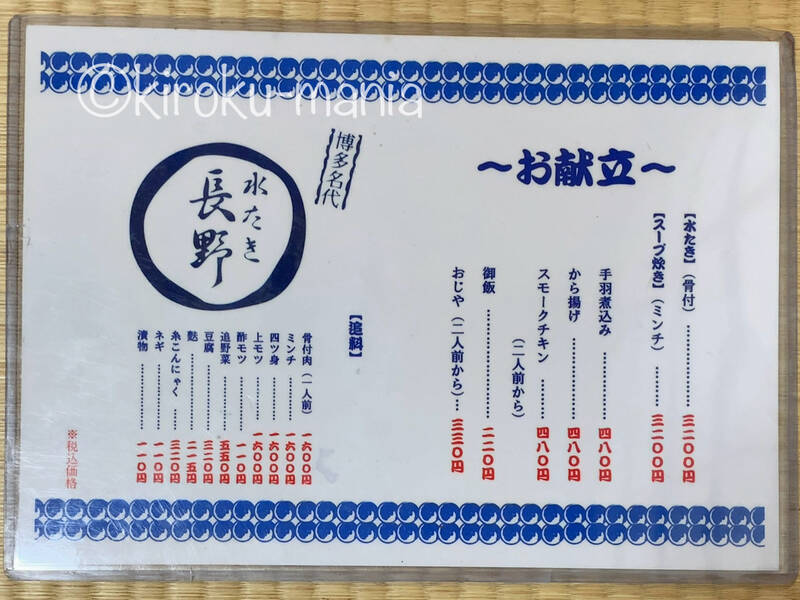 ©kiroku-mania
〜お献立〜
【水たき】（骨付）………………三二〇〇円
【スープ炊き】（ミンチ）………三二〇〇円
手羽煮込み………………四八〇円
から揚げ………………四八〇円
スモークチキン………四八〇円
（二人前から）
御飯………………………二二〇円
おじや（二人前から）…三三〇円
博多名代
水たき
長野
【追料】
骨付肉（一人前）一六〇〇円
ミンチ………一六〇〇円
四ツ身………一六〇〇円
上モツ………一六〇〇円
酢モツ………一一〇円
追野菜………五五〇円
豆腐…………三二〇円
麩……………二一五円
糸こんにゃく…三二〇円
ネギ…………一一〇円
漬物…………一一〇円
※税込価格